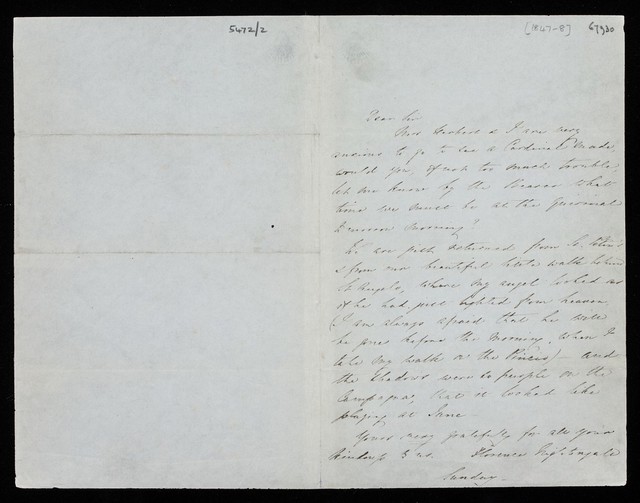 5472/2
[1847-8]
67930
Dear Sir
Mrs Herbert & I are very
anxious to go to see a Cardinal made,
would you, if not too much trouble,
let me know by the Bearer what
time we must be at the Quirinal
tomorrow morning?
We are just returned from St. Peter's
& from our beautiful walk
St Angelo, where my angel looked as
if he had just lighted from heaven,
(I am always afraid that he will
be gone before the morning, when I
take my walk on the Pincio) - and
the shadows were so purple on the
Campagna, that it looked like
at June -
Yours very gratefully for all your
kindness to us. Florence Nightingale
Sunday -